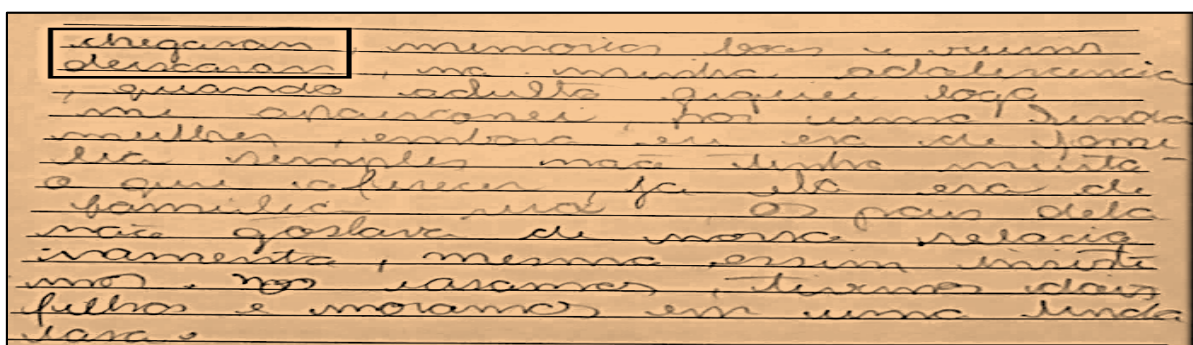 chegaram, memorias boas e ruins
deixaram, na minha adolescencia
, quando adulto fiquei logo
mi apaixonei, por uma linda
mulher, embora eu era de fami
lia simples não tinha muito
o que oferecer, ja ela era de
familia rica, os pais dela
não gostava de nossa relacio
namento, mesmo assim insisti
mos. nos casamos, tivemos dois
filhos e moramos em uma linda
casa.